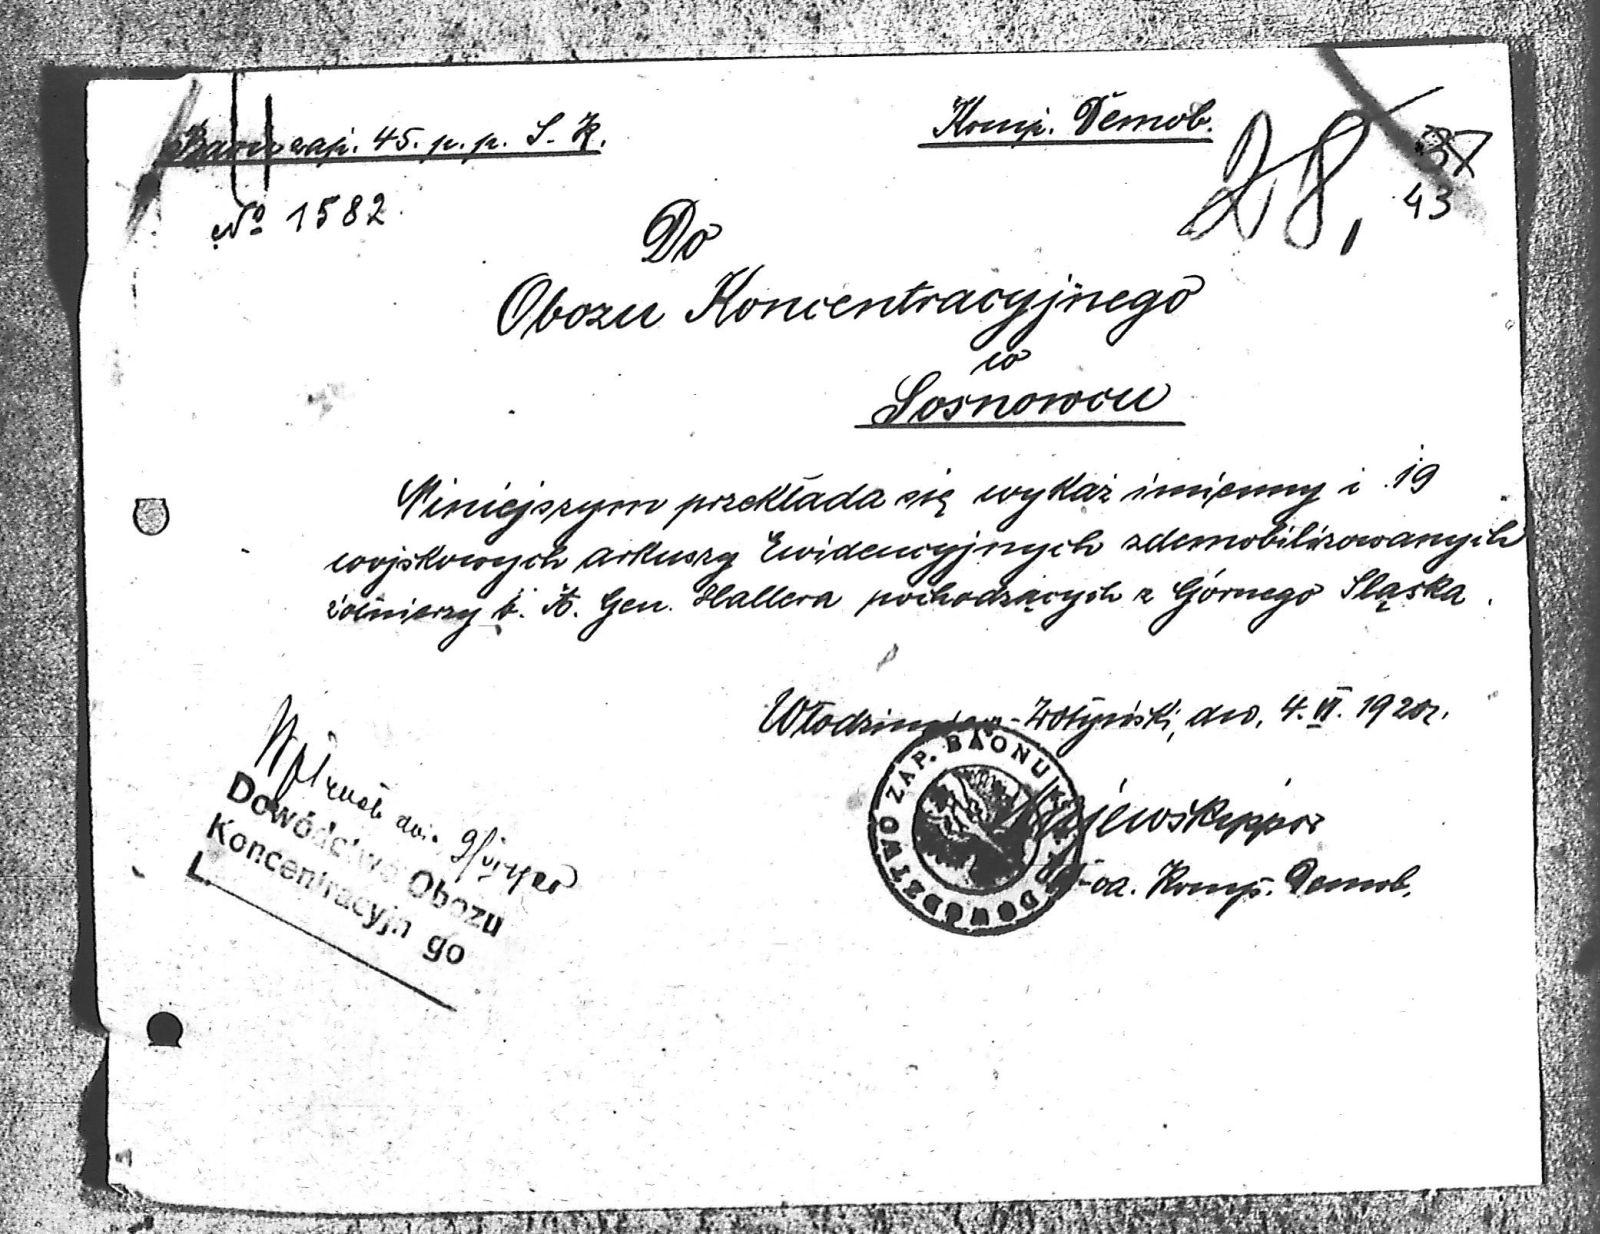 Baon zap. 45. p. p. S. K.
Komp. Demob.
28,
37
43
No 1582
Do
Obozu Koncentracyjnego
w
Sosnowcu
Niniejszym przekłada się wykaz imienny i 19
wojskowych arkuszy Ewidencyjnych zdemobilizowanych
żołnierzy b. A. Gen. Hallera pochodzących z Górnego Sląska.
Włodzimierz-Wołyński, dn. 4.VI.1920r.
DOWÓDZTWO ZAP. BAONU
ppor
Komp. Demob.
dn. 9/VI
Dowództwo Obozu
Koncentracyjn go
L.